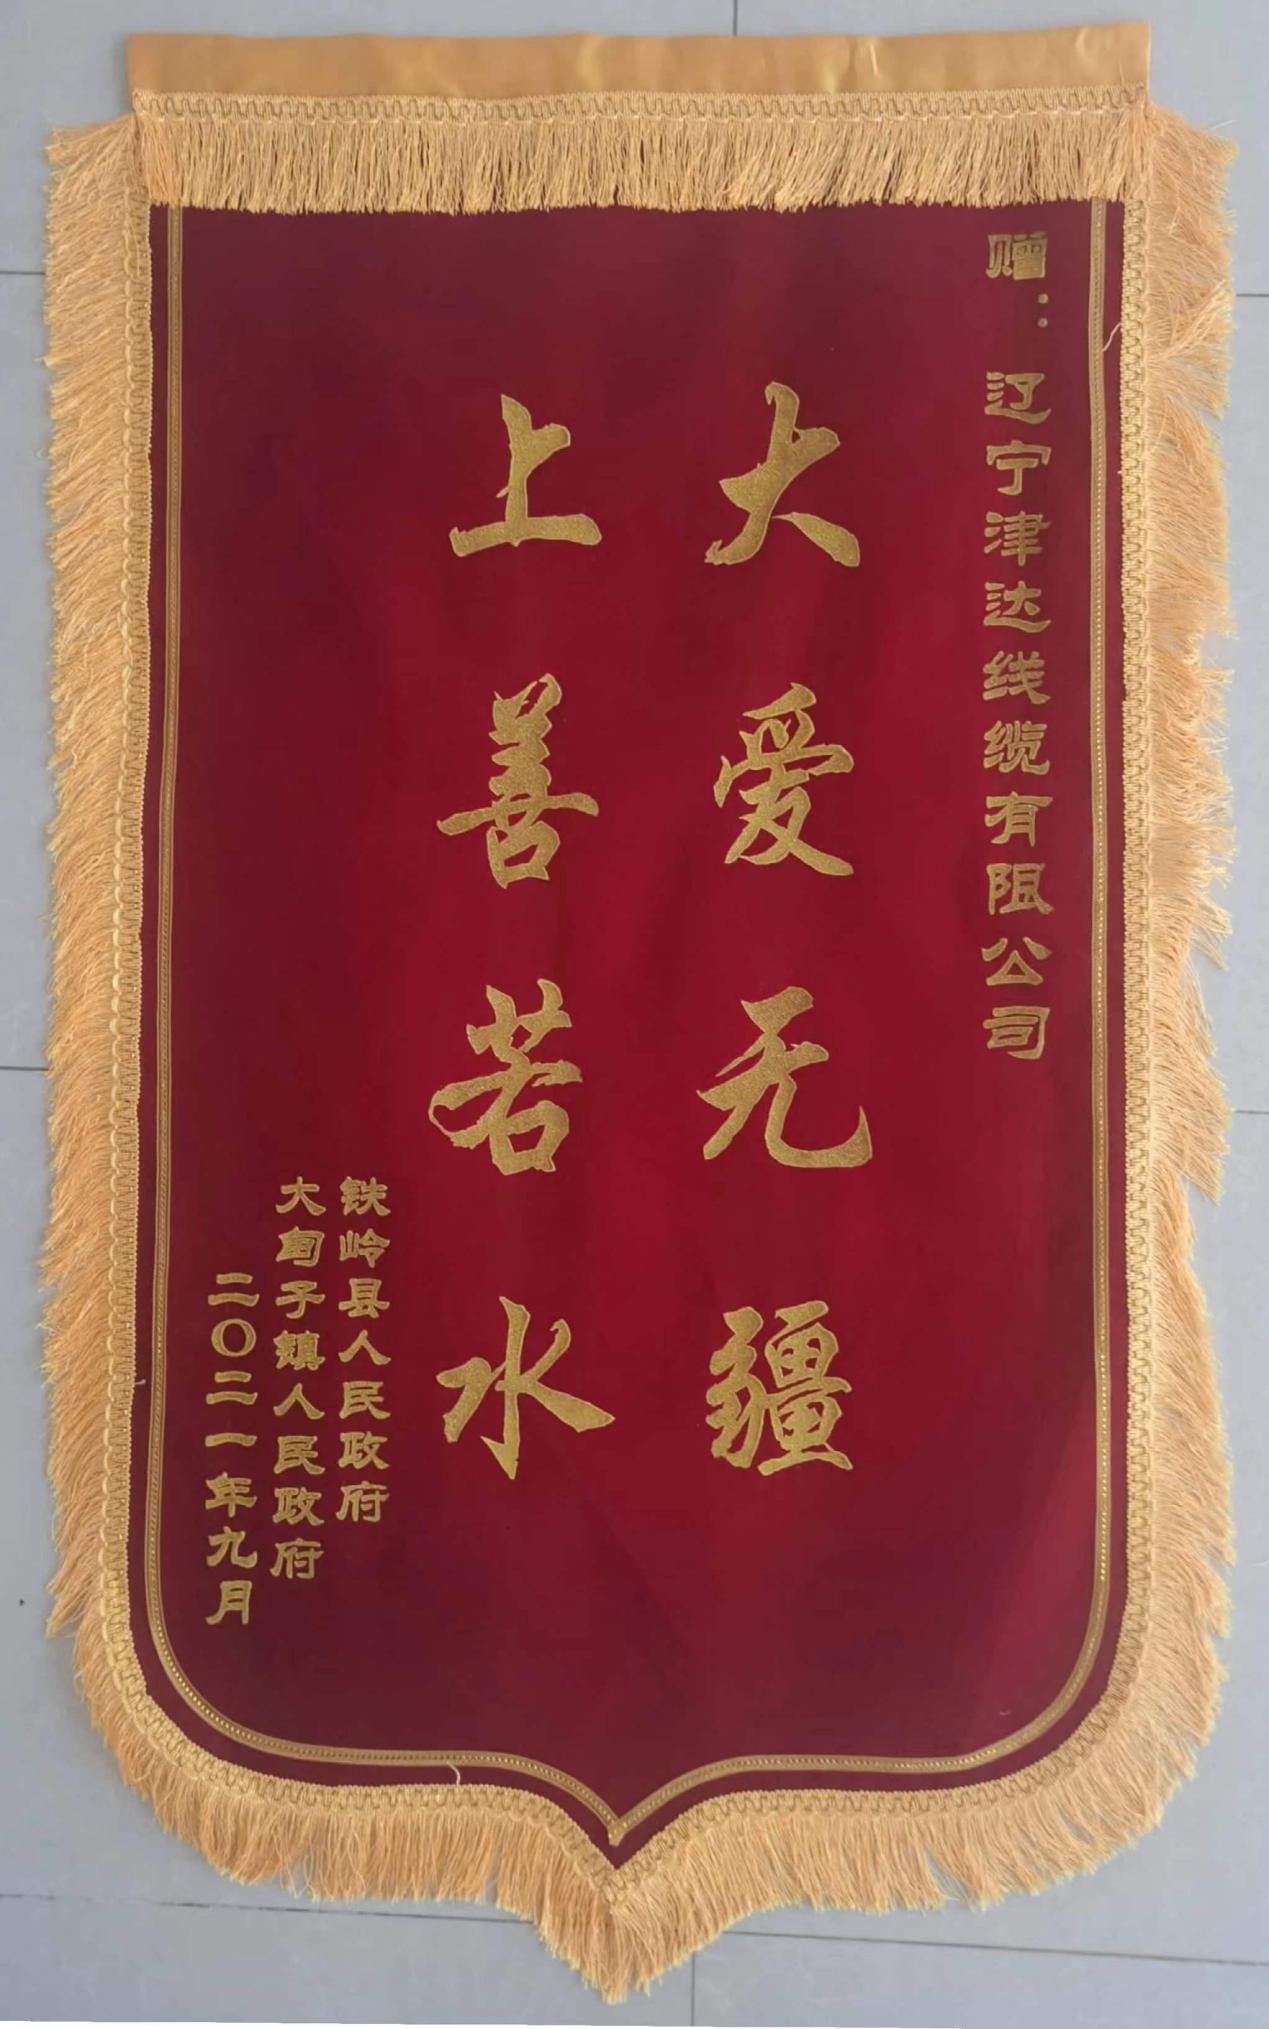 赠：辽宁津达线缆有限公司
大爱无疆
上善若水
铁岭县人民政府
大甸子镇人民政府
二〇二一年九月